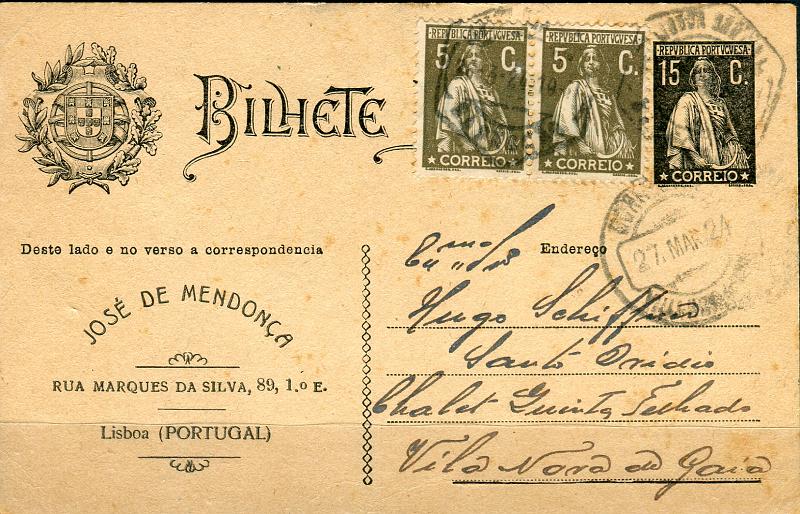 BILHETE
REPVBLICA PORTVGVESA
5 C.
CORREIO
REPVBLICA PORTVGVESA
5 C.
CORREIO
REPVBLICA PORTVGVESA
15 C.
CORREIO
27. MAR. 24
Deste lado e no verso a correspondencia
JOSÉ DE MENDONÇA
RUA MARQUES DA SILVA, 89, 1.º E.
Lisboa (PORTUGAL)
Endereço
Hugo
Santo Ovidio
Chalet Quinta
Vila Nova de Gaia